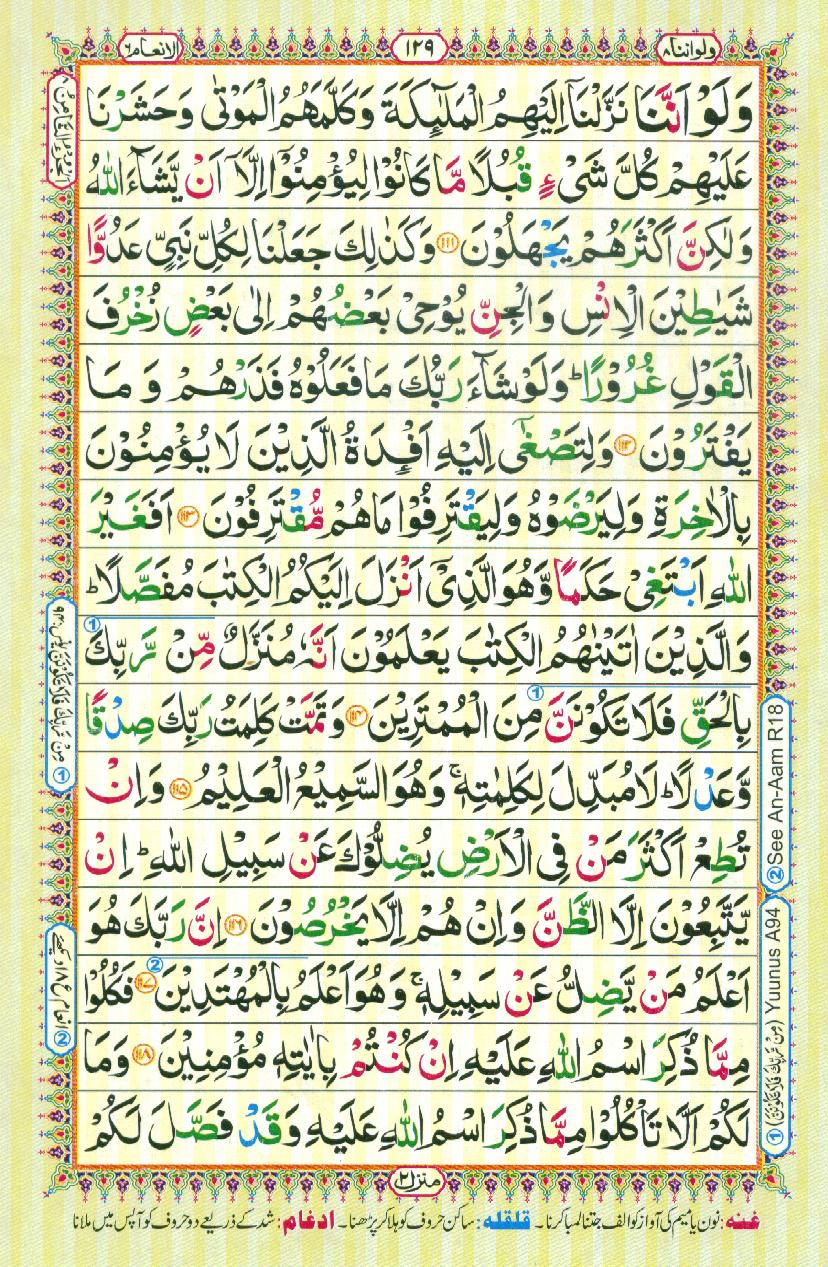 ولواننا ٨
١٢٩
الانعام ٦
وَلَوْ اَنَّنَا نَزَّلْنَاۤ اِلَيْهِمُ الْمَلٰٓئِكَةَ وَكَلَّمَهُمُ الْمَوْتٰى وَحَشَرْنَا
عَلَيْهِمْ كُلَّ شَىْءٍ قُبُلًا مَّا كَانُوْا لِيُؤْمِنُوْۤا اِلَّاۤ اَنْ يَّشَآءَ اللّٰهُ
وَلٰكِنَّ اَكْثَرَهُمْ يَجْهَلُوْنَ ١١١ وَكَذٰلِكَ جَعَلْنَا لِكُلِّ نَبِىٍّ عَدُوًّا
شَيٰطِيْنَ الْاِنْسِ وَالْجِنِّ يُوْحِىْ بَعْضُهُمْ اِلٰى بَعْضٍ زُخْرُفَ
الْقَوْلِ غُرُوْرًا ؕ وَلَوْ شَآءَ رَبُّكَ مَا فَعَلُوْهُ فَذَرْهُمْ وَمَا
يَفْتَرُوْنَ ١١٢ وَلِتَصْغٰٓى اِلَيْهِ اَفْـِٕدَةُ الَّذِيْنَ لَا يُؤْمِنُوْنَ
بِالْاٰخِرَةِ وَلِيَرْضَوْهُ وَلِيَقْتَرِفُوْا مَا هُمْ مُّقْتَرِفُوْنَ ١١٣ اَفَغَيْرَ
اللّٰهِ اَبْتَغِىْ حَكَمًا وَّهُوَ الَّذِىْۤ اَنْزَلَ اِلَيْكُمُ الْكِتٰبَ مُفَصَّلًا ؕ
وَالَّذِيْنَ اٰتَيْنٰهُمُ الْكِتٰبَ يَعْلَمُوْنَ اَنَّهٗ مُنَزَّلٌ مِّنْ رَّبِّكَ 1
بِالْحَقِّ فَلَا تَكُوْنَنَّ 1 مِنَ الْمُمْتَرِيْنَ ١١٤ وَتَمَّتْ كَلِمَتُ رَبِّكَ صِدْقًا
وَّعَدْلًا ؕ لَا مُبَدِّلَ لِكَلِمٰتِهٖ ۚ وَهُوَ السَّمِيْعُ الْعَلِيْمُ ١١٥ وَاِنْ
تُطِعْ اَكْثَرَ مَنْ فِى الْاَرْضِ يُضِلُّوْكَ عَنْ سَبِيْلِ اللّٰهِ ؕ اِنْ
يَّتَّبِعُوْنَ اِلَّا الظَّنَّ وَاِنْ هُمْ اِلَّا يَخْرُصُوْنَ ١١٦ اِنَّ رَبَّكَ هُوَ
اَعْلَمُ مَنْ يَّضِلُّ عَنْ سَبِيْلِهٖ ۚ وَهُوَ اَعْلَمُ بِالْمُهْتَدِيْنَ 2 ١١٧ فَكُلُوْا
مِمَّا ذُكِرَ اسْمُ اللّٰهِ عَلَيْهِ اِنْ كُنْتُمْ بِاٰيٰتِهٖ مُؤْمِنِيْنَ ١١٨ وَمَا
لَكُمْ اَلَّا تَاْكُلُوْا مِمَّا ذُكِرَ اسْمُ اللّٰهِ عَلَيْهِ وَقَدْ فَصَّلَ لَكُمْ
منزل ٢
② See An-Aam R18
① (مِنْ رَّبِّكَ فَلَا تَكُوْنَنَّ) Yuunus A94
غنه: نون یا میم کی آواز کو الف جتنا لمبا کرنا۔ قلقله: ساکن حروف کو ہلا کر پڑھنا۔ ادغام: شد کے ذریعے دو حروف کو آپس میں ملانا